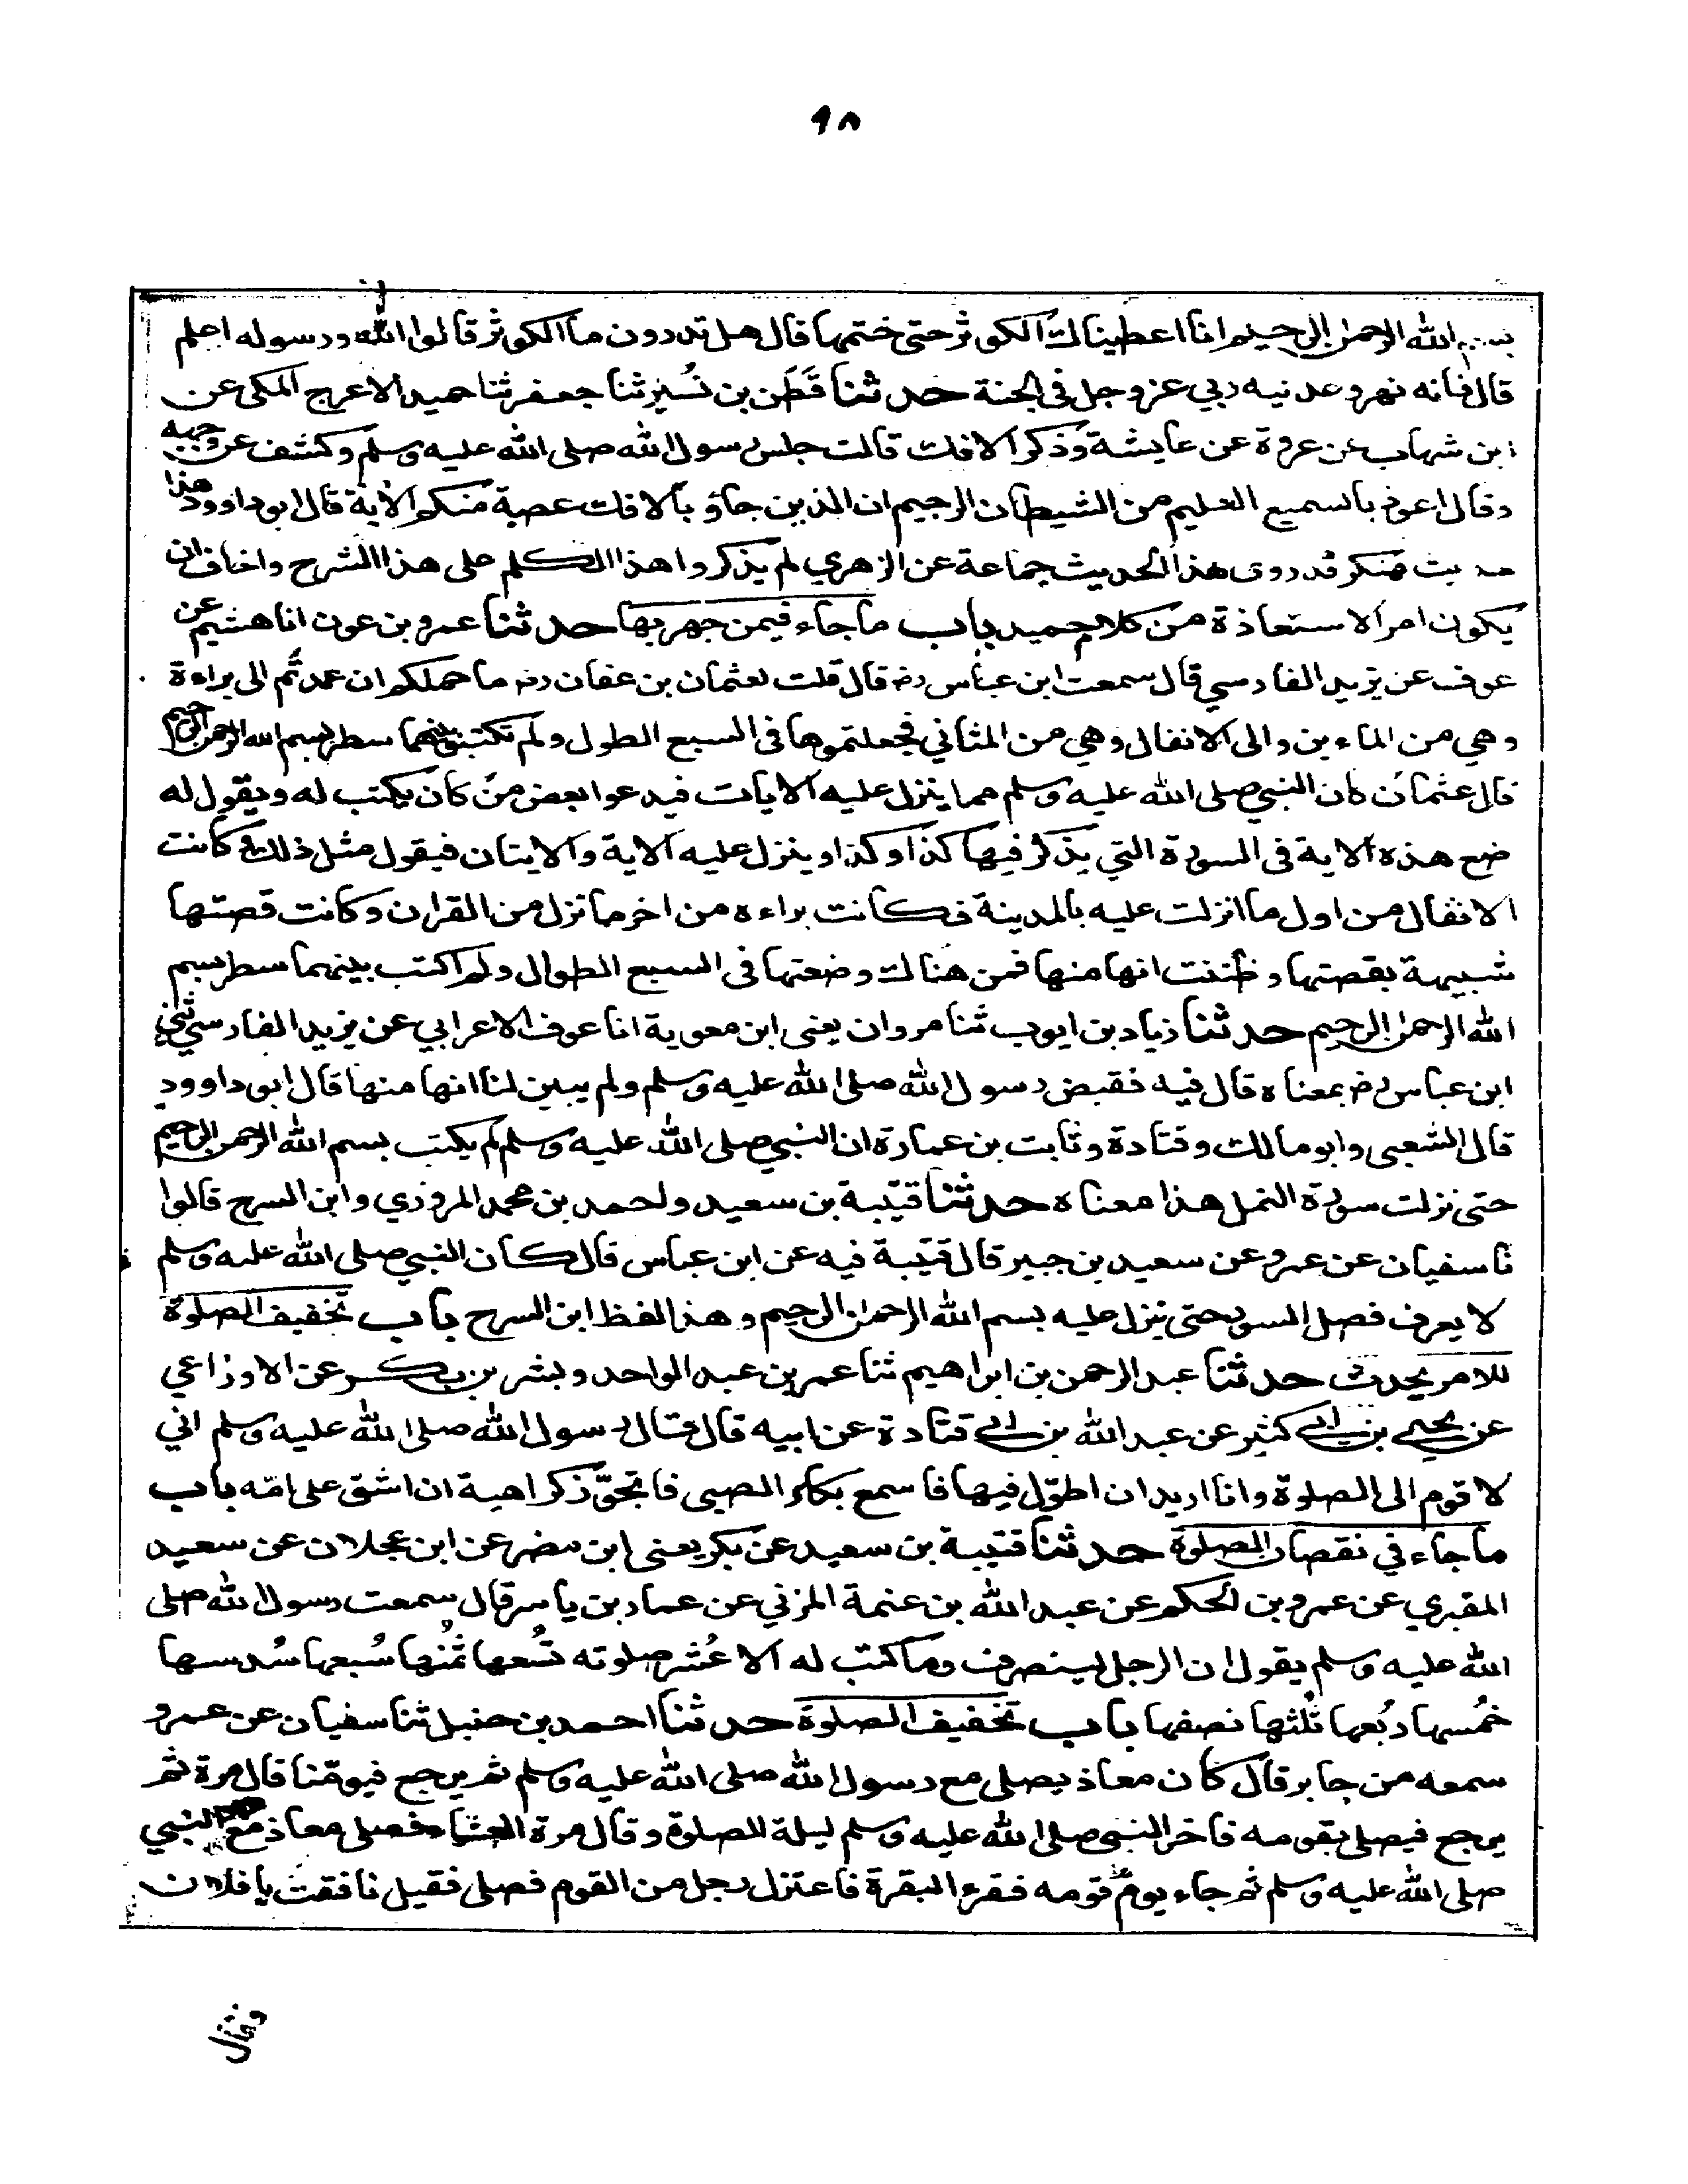 ٩٨
بسم الله الرحمن الرحيم انا اعطيناك الكوثر حتى ختمها قال هل تدرون ما الكوثر قالوا الله ورسوله اعلم
قال فانه نهر وعدنيه ربي عز وجل في الجنة حدثنا قَطَن بن نُسَير ثنا جعفر ثنا حميد الاعرج المكى عن
ابن شهاب عن عروة عن عايشة وذكر الافك قالت جلس رسول الله صلى الله عليه وسلم وكشف عن وجهه
وقال اعوذ بالسميع العليم من الشيطان الرجيم ان الذين جاؤ بالافك عصبة منكم الاية قال ابو داوود هذا
حديث منكر قد روى هذا الحديث جماعة عن الزهري لم يذكروا هذا الكلم على هذا الشرح واخاف ان
يكون امر الاستعاذة من كلام حميد باب ما جاء فيمن جهر بها حدثنا عمرو بن عون انا هشيم عن
عوف عن يزيد الفارسي قال سمعت ابن عباس رضه قال قلت لعثمان بن عفان رضه ما حملكم ان عمدتم الى براءة
وهي من الماءين والى الانفال وهي من المثاني فجعلتموها فى السبع الطول ولم تكتبو بينهما سطر بسم الله الرحمن الرحيم
قال عثمان كان النبي صلى الله عليه وسلم مما ينزل عليه الايات فيدعوا بعض من كان يكتب له ويقول له
ضع هذه الاية فى السورة التي يذكر فيها كذا وكذا وينزل عليه الاية والايتان فيقول مثل ذلك وكانت
الانفال من اول ما انزلت عليه بالمدينة فكانت براءه من اخر ما نزل من القران وكانت قصتها
شبيهة بقصتها وظننت انها منها فمن هناك وضعتها فى السبع الطوال ولم اكتب بينهما سطر بسم
الله الرحمن الرحيم حدثنا زياد بن ايوب ثنا مروان يعنى ابن معوية انا عوف الاعرابي عن يزيد الفارسي ثني
ابن عباس رض بمعناه قال فيه فقبض رسول الله صلى الله عليه وسلم ولم يبين لنا انها منها قال ابو داوود
قال الشعبى وابو مالك وقتادة وثابت بن عمارة ان النبي صلى الله عليه وسلم لم يكتب بسم الله الرحمن الرحيم
حتى نزلت سورة النمل هذا معناه حدثنا قتيبة بن سعيد واحمد بن محمد المروزي وابن السرح قالوا
نا سفيان عن عمرو عن سعيد بن جبير قال قتيبة فيه عن ابن عباس قال كان النبي صلى الله عليه وسلم
لا يعرف فصل السورة حتى ينزل عليه بسم الله الرحمن الرحيم وهذا لفظ ابن السرح باب تخفيف الصلوة
للامر يحدث حدثنا عبد الرحمن بن ابراهيم ثنا عمر بن عبد الواحد وبشر بن بكر عن الاوزاعي
عن يحيى بن ابي كثير عن عبد الله بن ابي قتادة عن ابيه قال قال رسول الله صلى الله عليه وسلم اني
لاقوم الى الصلوة وانا اريد ان اطوّل فيها فاسمع بكاء الصبى فاتجوّز كراهية ان اشق على امّه باب
ما جاء في نقصان الصلوة حدثنا قتيبة بن سعيد عن بكر يعنى ابن مضر عن ابن عجلان عن سعيد
المقبري عن عمرو بن الحكم عن عبد الله بن عنمة المزني عن عمار بن ياسر قال سمعت رسول الله صلى
الله عليه وسلم يقول ان الرجل لينصرف وما كتب له الا عُشر صلوته تُسُعها ثُمُنها سُبعها سُدسها
خمُسها ربُعها ثُلثها نصفها باب تخفيف الصلوة حدثنا احمد بن حنبل ثنا سفيان عن عمرو
سمعه من جابر قال كان معاذ يصلى مع رسول الله صلى الله عليه وسلم ثم يرجع فيومّنا قال مرة ثم
يرجع فيصلى بقومه فاخر النبى صلى الله عليه وسلم ليلة الصلوة وقال مرة العشاء فصلى معاذ مع النبي
صلى الله عليه وسلم ثم جاء يوم قومه فقرء البقرة فاعتزل رجل من القوم فصلى فقيل نافقت يا فلان
فقال